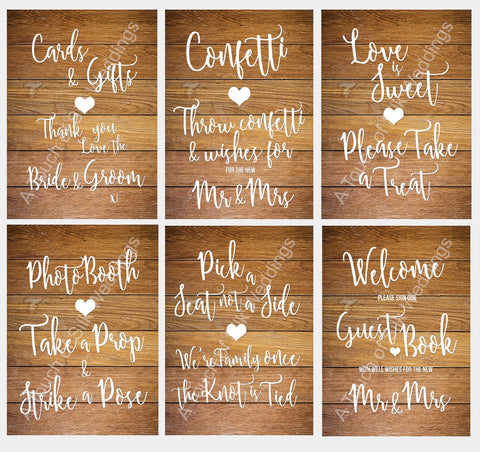 Cards
& Gifts
Thank you
Love the
Bride & Groom
x
Confetti
Throw confetti
& wishes for
FOR THE NEW
Mr & Mrs
Love
is
Sweet
Please Take
a Treat
Photo Booth
Take a Prop
&
Strike a Pose
Pick a
Seat not a Side
We're Family once
the Knot is Tied
Welcome
PLEASE SIGN OUR
Guest Book
WITH WELL WISHES FOR THE NEW
Mr & Mrs